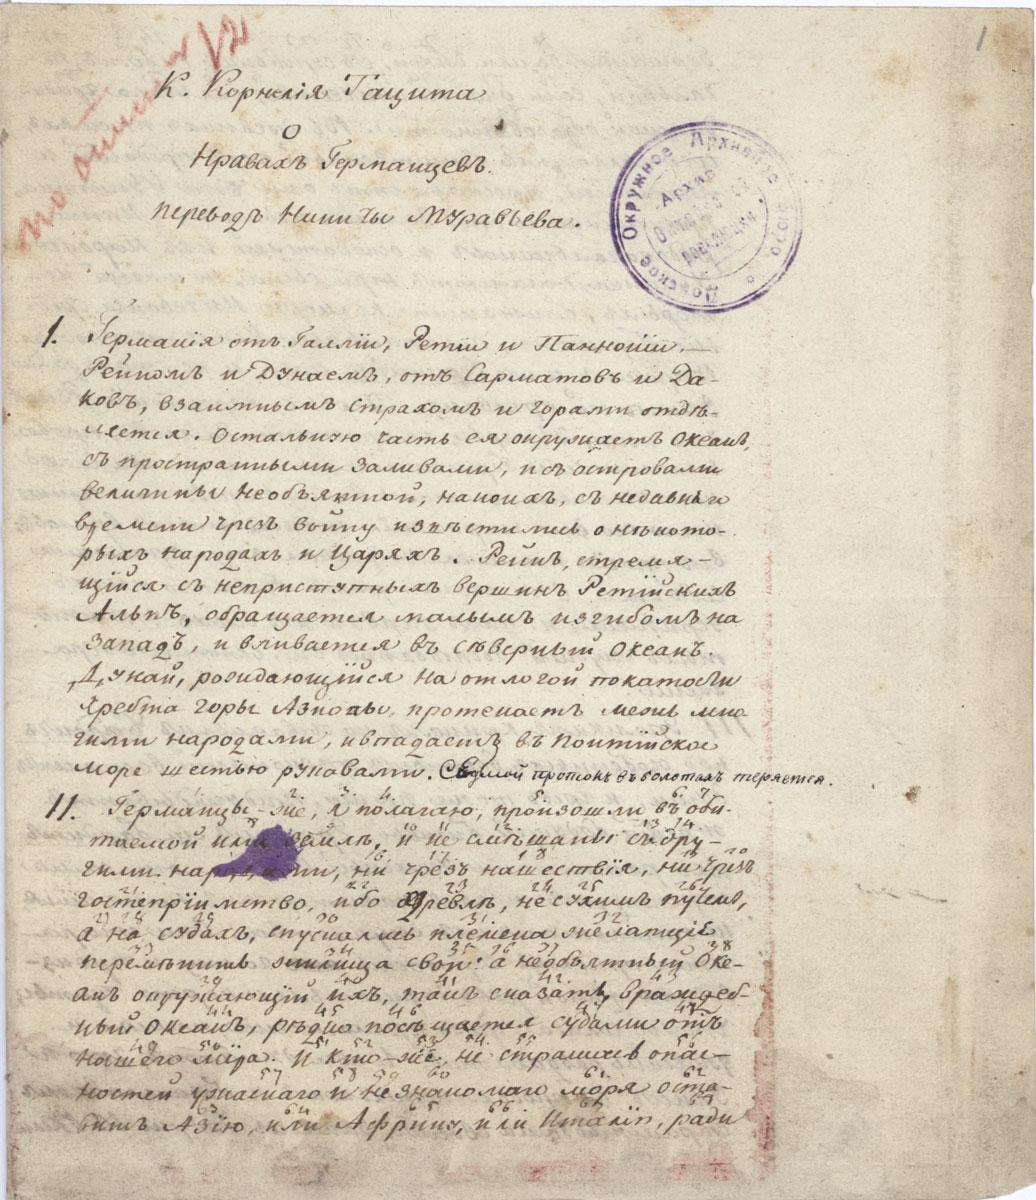 1
К. Корнелія Тацита
О
Нравахъ Германцевъ.
переводъ Никиты Муравьева.
I. Германія отъ Галліи, Ретіи и Панноніи —
Рейномъ и Дунаемъ, отъ Сарматовъ и Да-
ковъ, взаимнымъ страхомъ и горами отдѣ-
ляется. Остальную часть ея окружаетъ Океанъ,
съ пространными заливами, и съ островами
величины необъятной, на коихъ, съ недавняго
времени чрезъ войну извѣстились о нѣкото-
рыхъ народахъ и Царяхъ. Рейнъ, стремя-
щійся съ неприступныхъ вершинъ Ретійскихъ
Альпъ, обращается малымъ изгибомъ на
Западъ, и вливается въ сѣверный Океанъ.
Дунай, рождающійся на отлогой покатости
хребта горы Абнобы, протекаетъ межь мно-
гими народами, и впадаетъ въ Понтійское
море шестью рукавами. Седмой протокъ въ болотахъ теряется.
II. Германцы-же, я полагаю, произошли въ оби-
таемой ими землѣ, и не смѣшаны съ дру-
гими народами, ни чрезъ нашествія, ни чрезъ
гостепріимство, ибо древлѣ, не сухимъ путемъ,
а на судахъ, спускались племена желающіе
перемѣнить жилища свои: а необъятный Оке-
анъ окружающій ихъ, такъ сказать, враждеб-
ный Океанъ, рѣдко посѣщается судами отъ
нашего міра. И кто-же, не страшась опас-
ностей ужаснаго и незнакомаго моря оста-
витъ Азію, или Африку, или Италію, ради